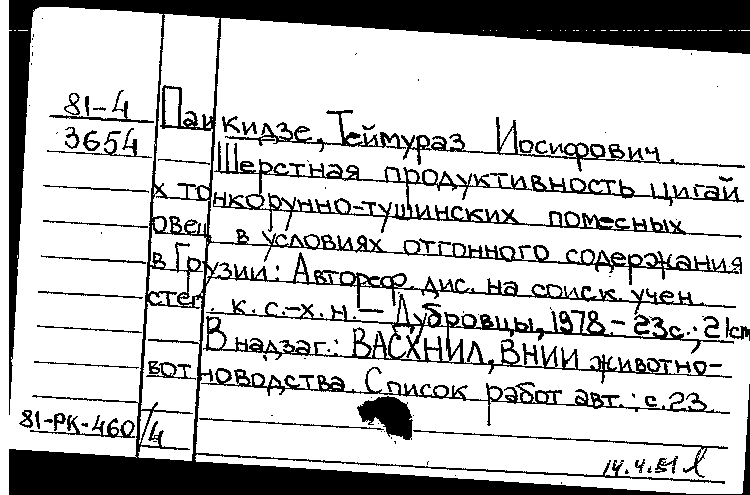 81-4
3654
Паикидзе, Теймураз Иосифович.
Шерстная продуктивность цигай
х тонкорунно-тушинских помесных
овец в условиях отгонного содержания
в Грузии: Автореф. дис. на соиск. учен.
степ. к. с.-х. н. — Дубровцы, 1978. - 23 с.; 21 cm
В надзаг.: ВАСХНИЛ, ВНИИ животно-
вотноводства. Список работ авт.: с. 23
81-РК-460/4